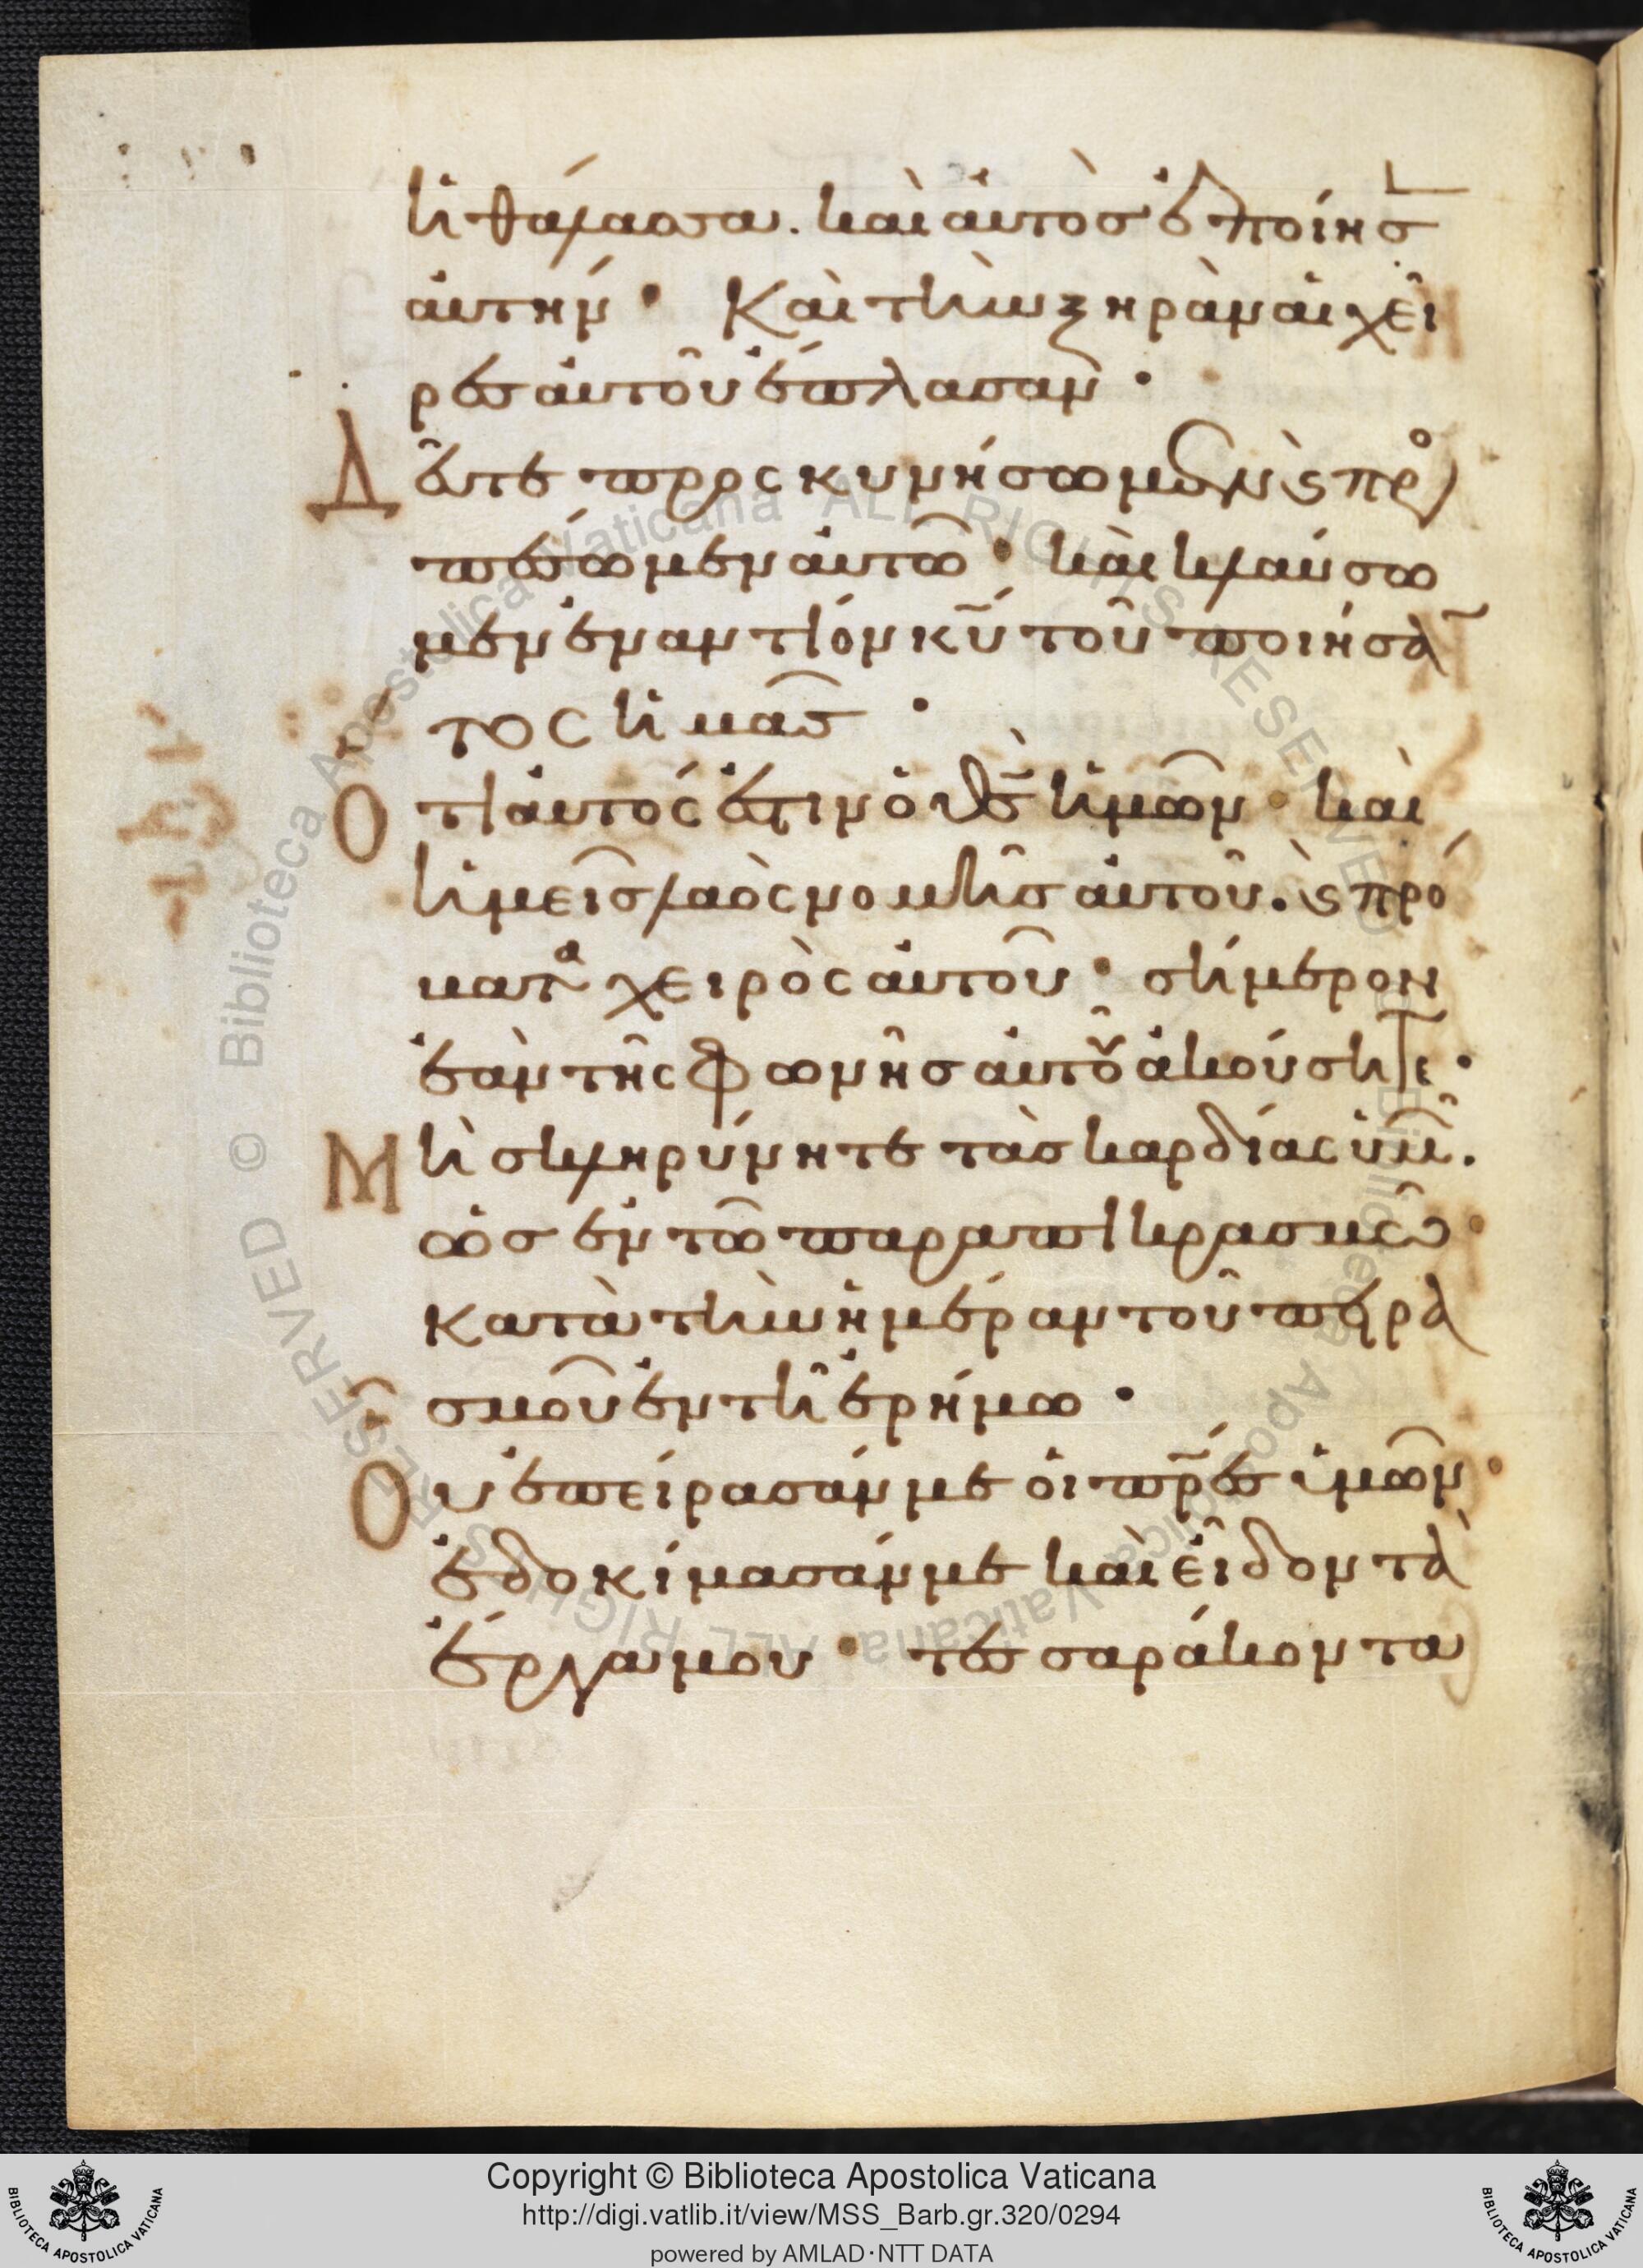 ἡ θάλασσα. καὶ αὐτὸσ ἐποίησ
αὐτήν· Καὶ τὴν ξηρὰν αἱ χεῖ
ρεσ αὐτοῦ ἔπλασαν·
Δεῦτε προσκυνήσωμεν ϛ προ
πέσωμεν αὐτῶ· καὶ κλαύσω
μεν ἐναντίον κῦ τοῦ ποιήσα
τοσ ἡμᾶσ·
Ὅτι αὐτός ἐστιν ὁ θσ ἡμῶν· καὶ
ἡμεῖσ λαὸς νομῆσ αὐτοῦ. ϛ πρό
ματα χειρὸς αὐτοῦ· σήμερον
ἐὰν τῆς φωνῆσ αὐτοῦ ἀκούσητε·
Μὴ σκληρύνητε τὰσ καρδίας ὑμ.
ὡσ ἐν τῶ παραπικρασμῶ·
κατὰ τὴν ἡμέραν τοῦ πειρα
σμοῦ ἐν τῆ ἐρήμω·
Οὗ ἐπείρασάν με οἱ πρεσ ὑμῶν·
ἐδοκίμασάν με καὶ εἶδον τὰ
ἔργα μου· τεσσαράκοντα
Copyright © Biblioteca Apostolica Vaticana
http://digi.vatlib.it/view/MSS_Barb.gr.320/0294
powered by AMLAD·NTT DATA